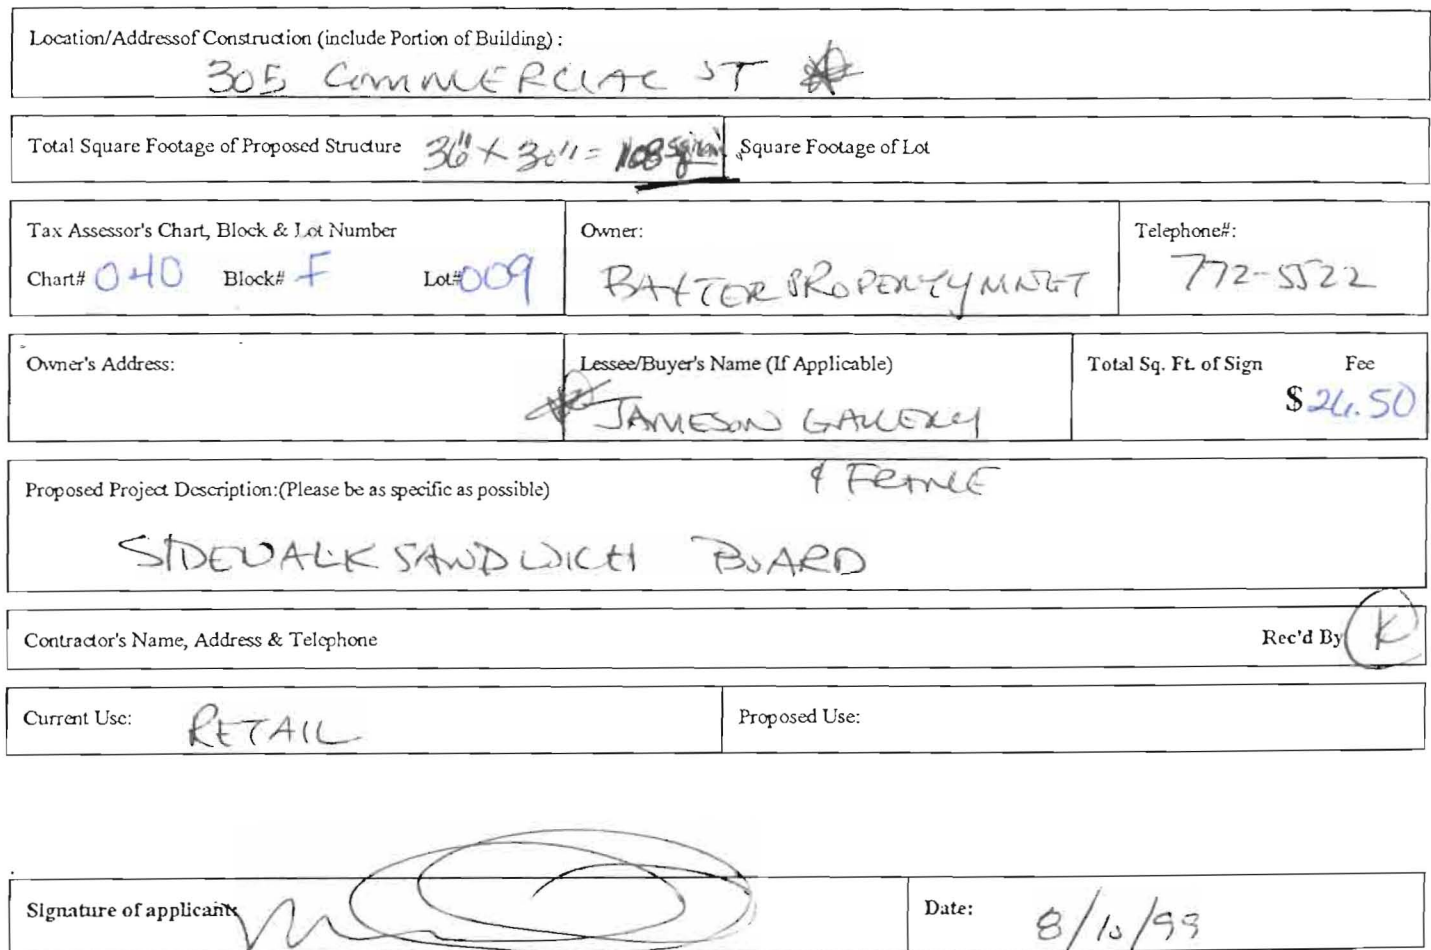 Location/Addressof Construction (include Portion of Building) :
305 COMMERCIAL ST
Total Square Footage of Proposed Structure 36" x 30" = Square Footage of Lot
Tax Assessor's Chart, Block & Lot Number Owner: Telephone#:
Chart# 040 Block# F Lot# 009 BAXTER PROPERTY MNGT 772-5522
Owner's Address: Lessee/Buyer's Name (If Applicable) Total Sq. Ft. of Sign Fee
JAMESON GALLERY $ 26.50
& FRAME
Proposed Project Description:(Please be as specific as possible)
SIDEWALK SANDWICH BOARD
Contractor's Name, Address & Telephone Rec'd By K
Current Use: RETAIL Proposed Use:
Signature of applicant: Date: 8/10/99